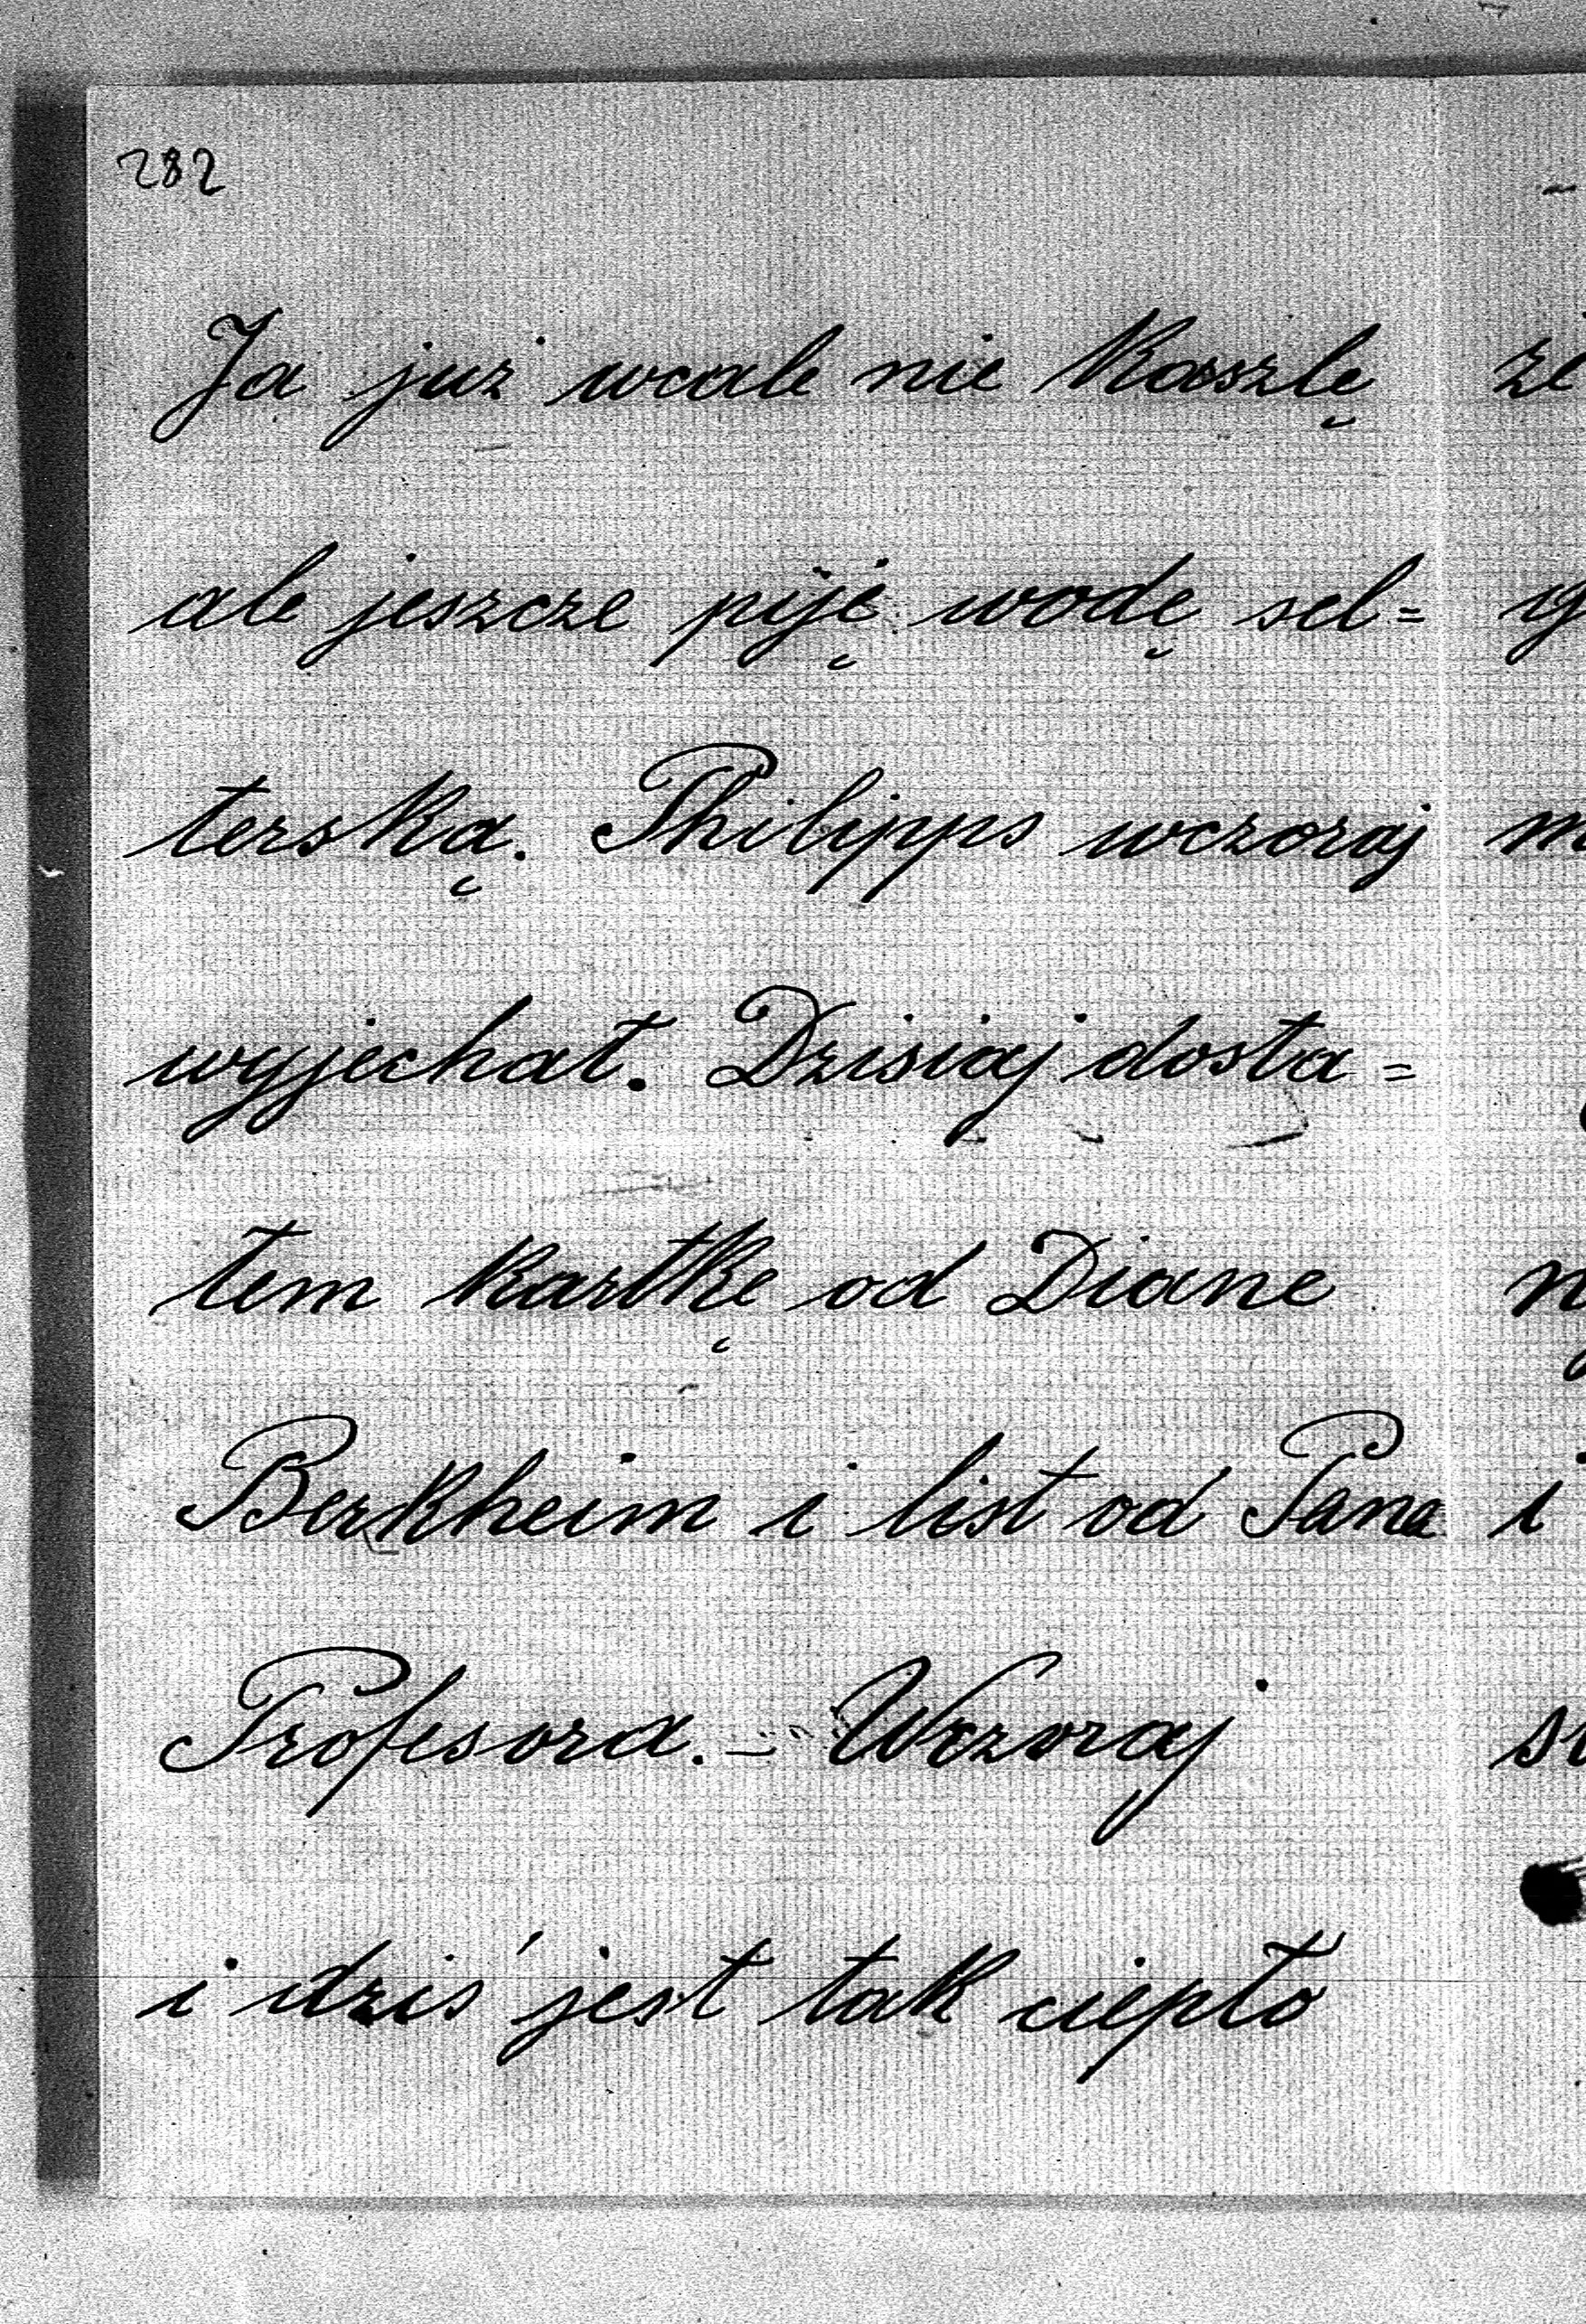 282
Ja już wcale nie kaszlę
ale jeszcze piję wodę sel=
terską. Philipps wczoraj
wyjechał. Dzisiaj dosta=
łem kartkę od Diane
Berkheim i list od Pana
Profesora. – Wczoraj
i dziś jest tak ciepło